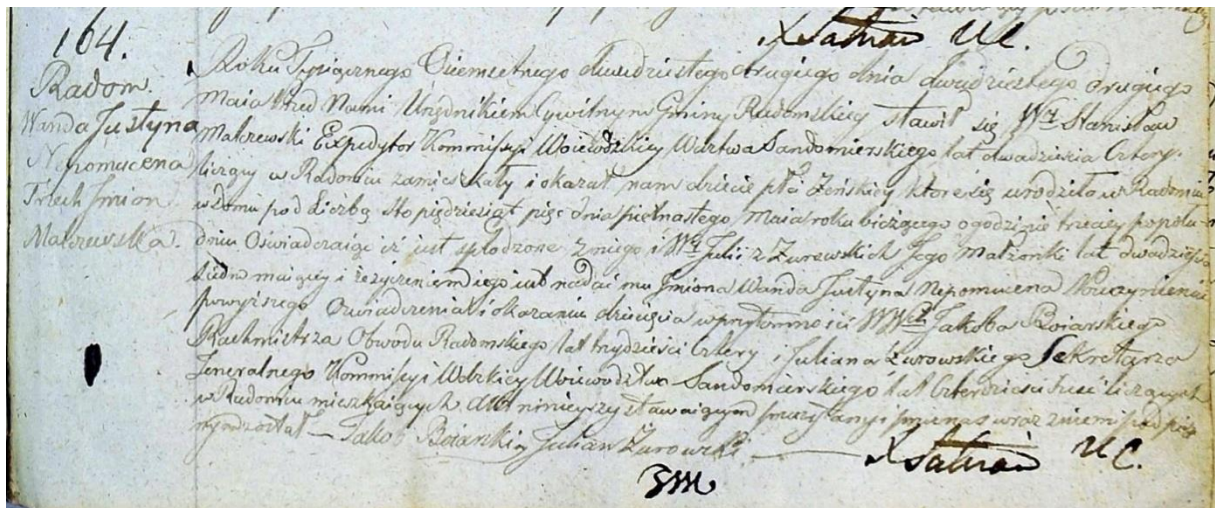 164.
Radom.
Wanda Justyna
Nepomucena
Trzech Imion
Malczewska.
Roku Tysiącznego Ośmsetnego dwudziestego drugiego dnia dwudziestego drugiego
Maia Przed Nami Urzędnikiem Cywilnym Gminy Radomskiey stawił się Wny Stanisław
Malczewski Expedytor Kommissyi Woiewodzkiey Wdztwa Sandomierskiego lat dwadzieścia Cztery
liczący w Radomiu zamieszkały i okazał nam dziecię płci Żeńskiey które się urodziło w Radomiu
w domu pod Liczbą sto pięćdziesiąt pięć dnia piętnastego Maia roku bieżącego o godzinie trzeciey popołu-
dniu Oświadczaiąc iż iest spłodzone z niego i Wny Julii z Żurowskich Jego Małżonki lat dwadzieścia
iedna maiącey i że życzeniem iego iest nadać mu Imiona Wanda Justyna Nepomucena Po uczynieniu
powyższego Oświadczenia i okazaniu dziecięcia w przytomności WWch Jakoba Boiarskiego
Rachmistrza Obwodu Radomskiego lat trzydzieści Cztery i Juliana Żurowskiego Sekretarza
Jeneralnego Kommissyi Wdzkiey Woiewodztwa Sandomierskiego lat Czterdzieści trzy liczących
w Radomiu mieszkaiących Akt ninieyszy stawaiącym przeczytany i przez nas wraz z niemi podpisa-
nym został — Jakob Boiarski Julian Żurowski
U C.
U C.